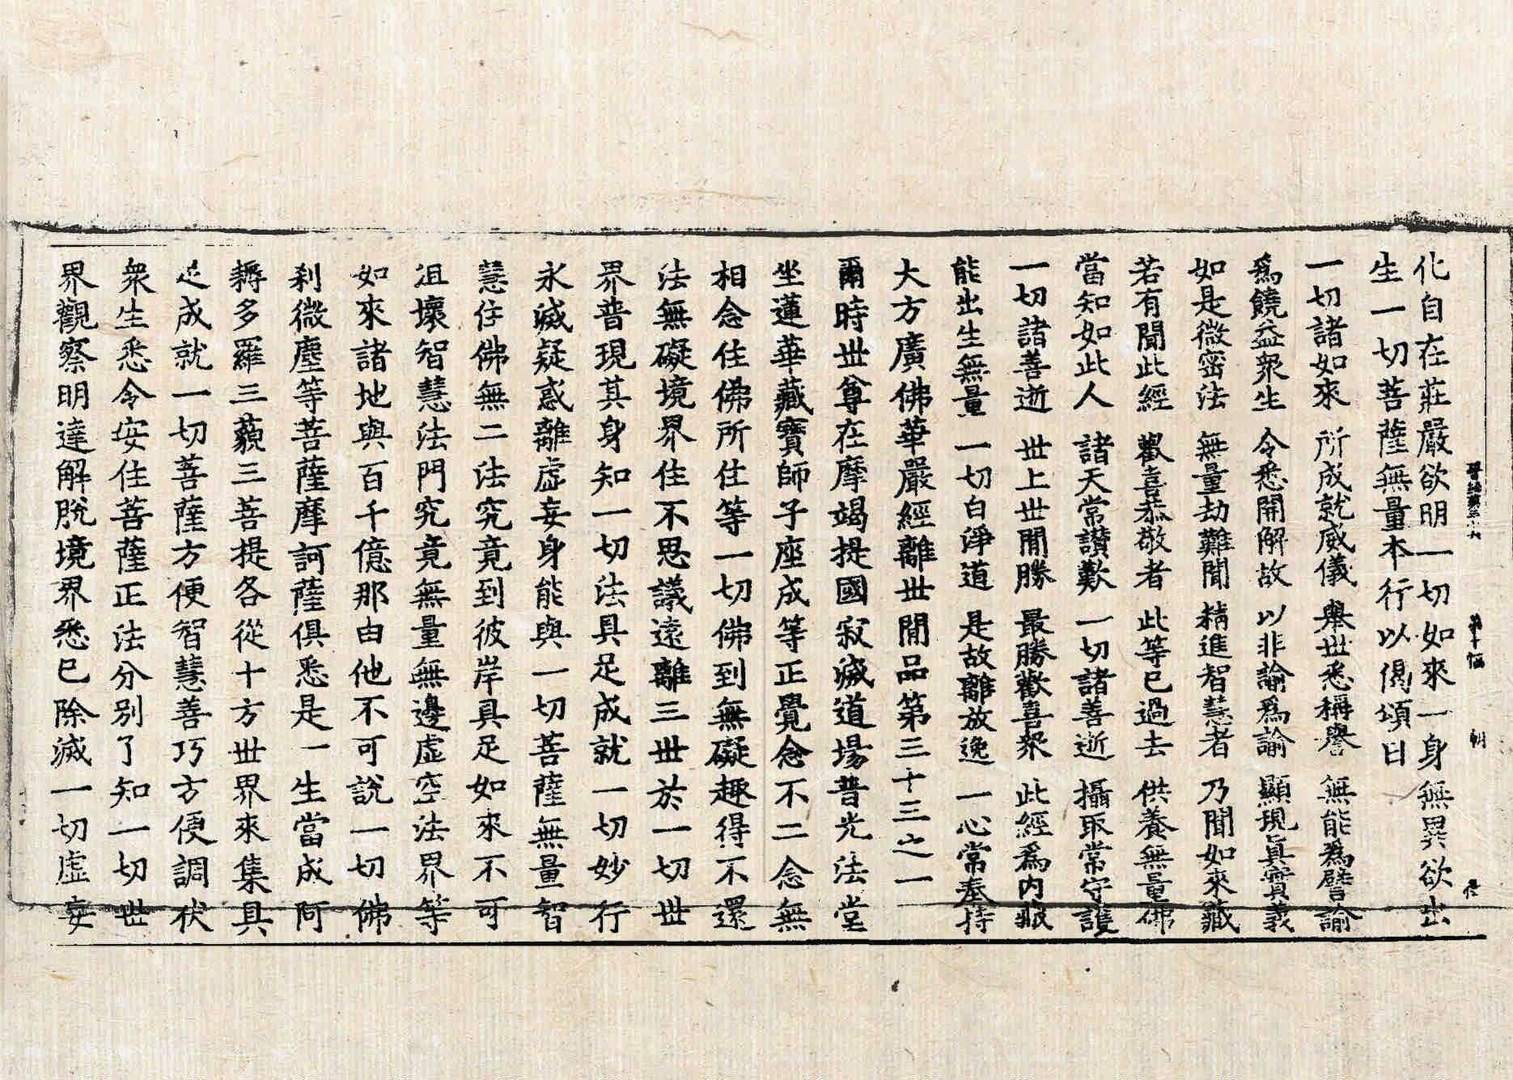 化自在莊嚴欲明一切如來一身無異欲出
生一切菩薩無量本行以偈頌曰
一切諸如來 所成就威儀 舉世悉稱譽 無能為譬諭
爲饒益衆生 令悉開解故 以非諭爲諭 顯現眞實義
如是微密法 無量劫難聞 精進智慧者 乃聞如來藏
若有聞此經 歡喜恭敬者 此等已過去 供養無量佛
當知如此人 諸天常讃歎 一切諸善逝 攝取常守護
一切諸善逝 世上世間勝 最勝歡喜衆 此經爲内眼
能出生無量 一切白淨道 是故離放逸 一心常奉持
大方廣佛華嚴經離世間品第三十三之一
爾時世尊在摩竭提國寂滅道場普光法堂
坐蓮華藏寶師子座成等正覺念不二念無
相念住佛所住等一切佛到無礙趣得不還
法無礙境界住不思議遠離三世於一切世
界普現其身知一切法具足成就一切妙行
永滅疑惑離虛妄身能與一切菩薩無量智
慧住佛無二法究竟到彼岸具足如來不可
沮壞智慧法門究竟無量無邊虛空法界等
如來諸地與百千億那由他不可說一切佛
刹微塵等菩薩摩訶薩俱悉是一生當成阿
耨多羅三藐三菩提各從十方世界來集具
足成就一切菩薩方便智慧善巧方便調伏
衆生悉令安住菩薩正法分別了知一切世
界觀察明達解脫境界悉已除滅一切虛妄